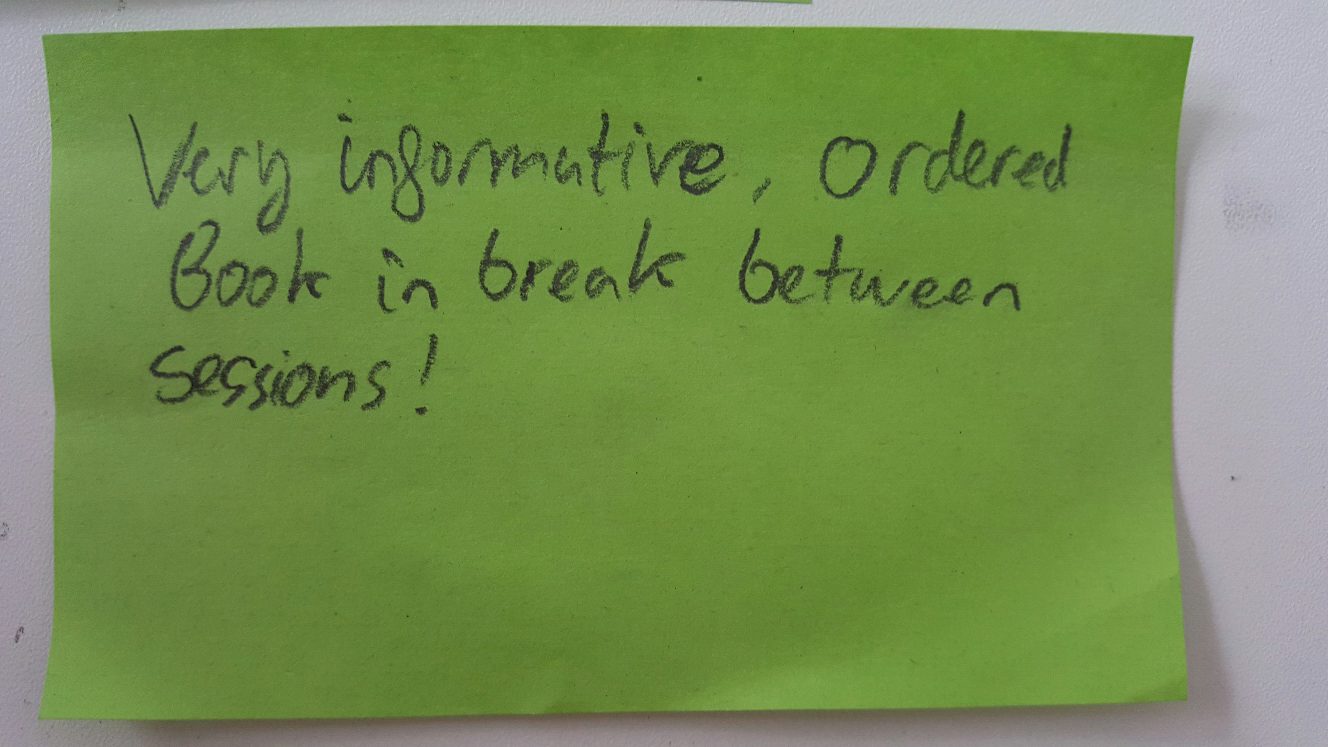 Very informative, Ordered
Book in break between
sessions!